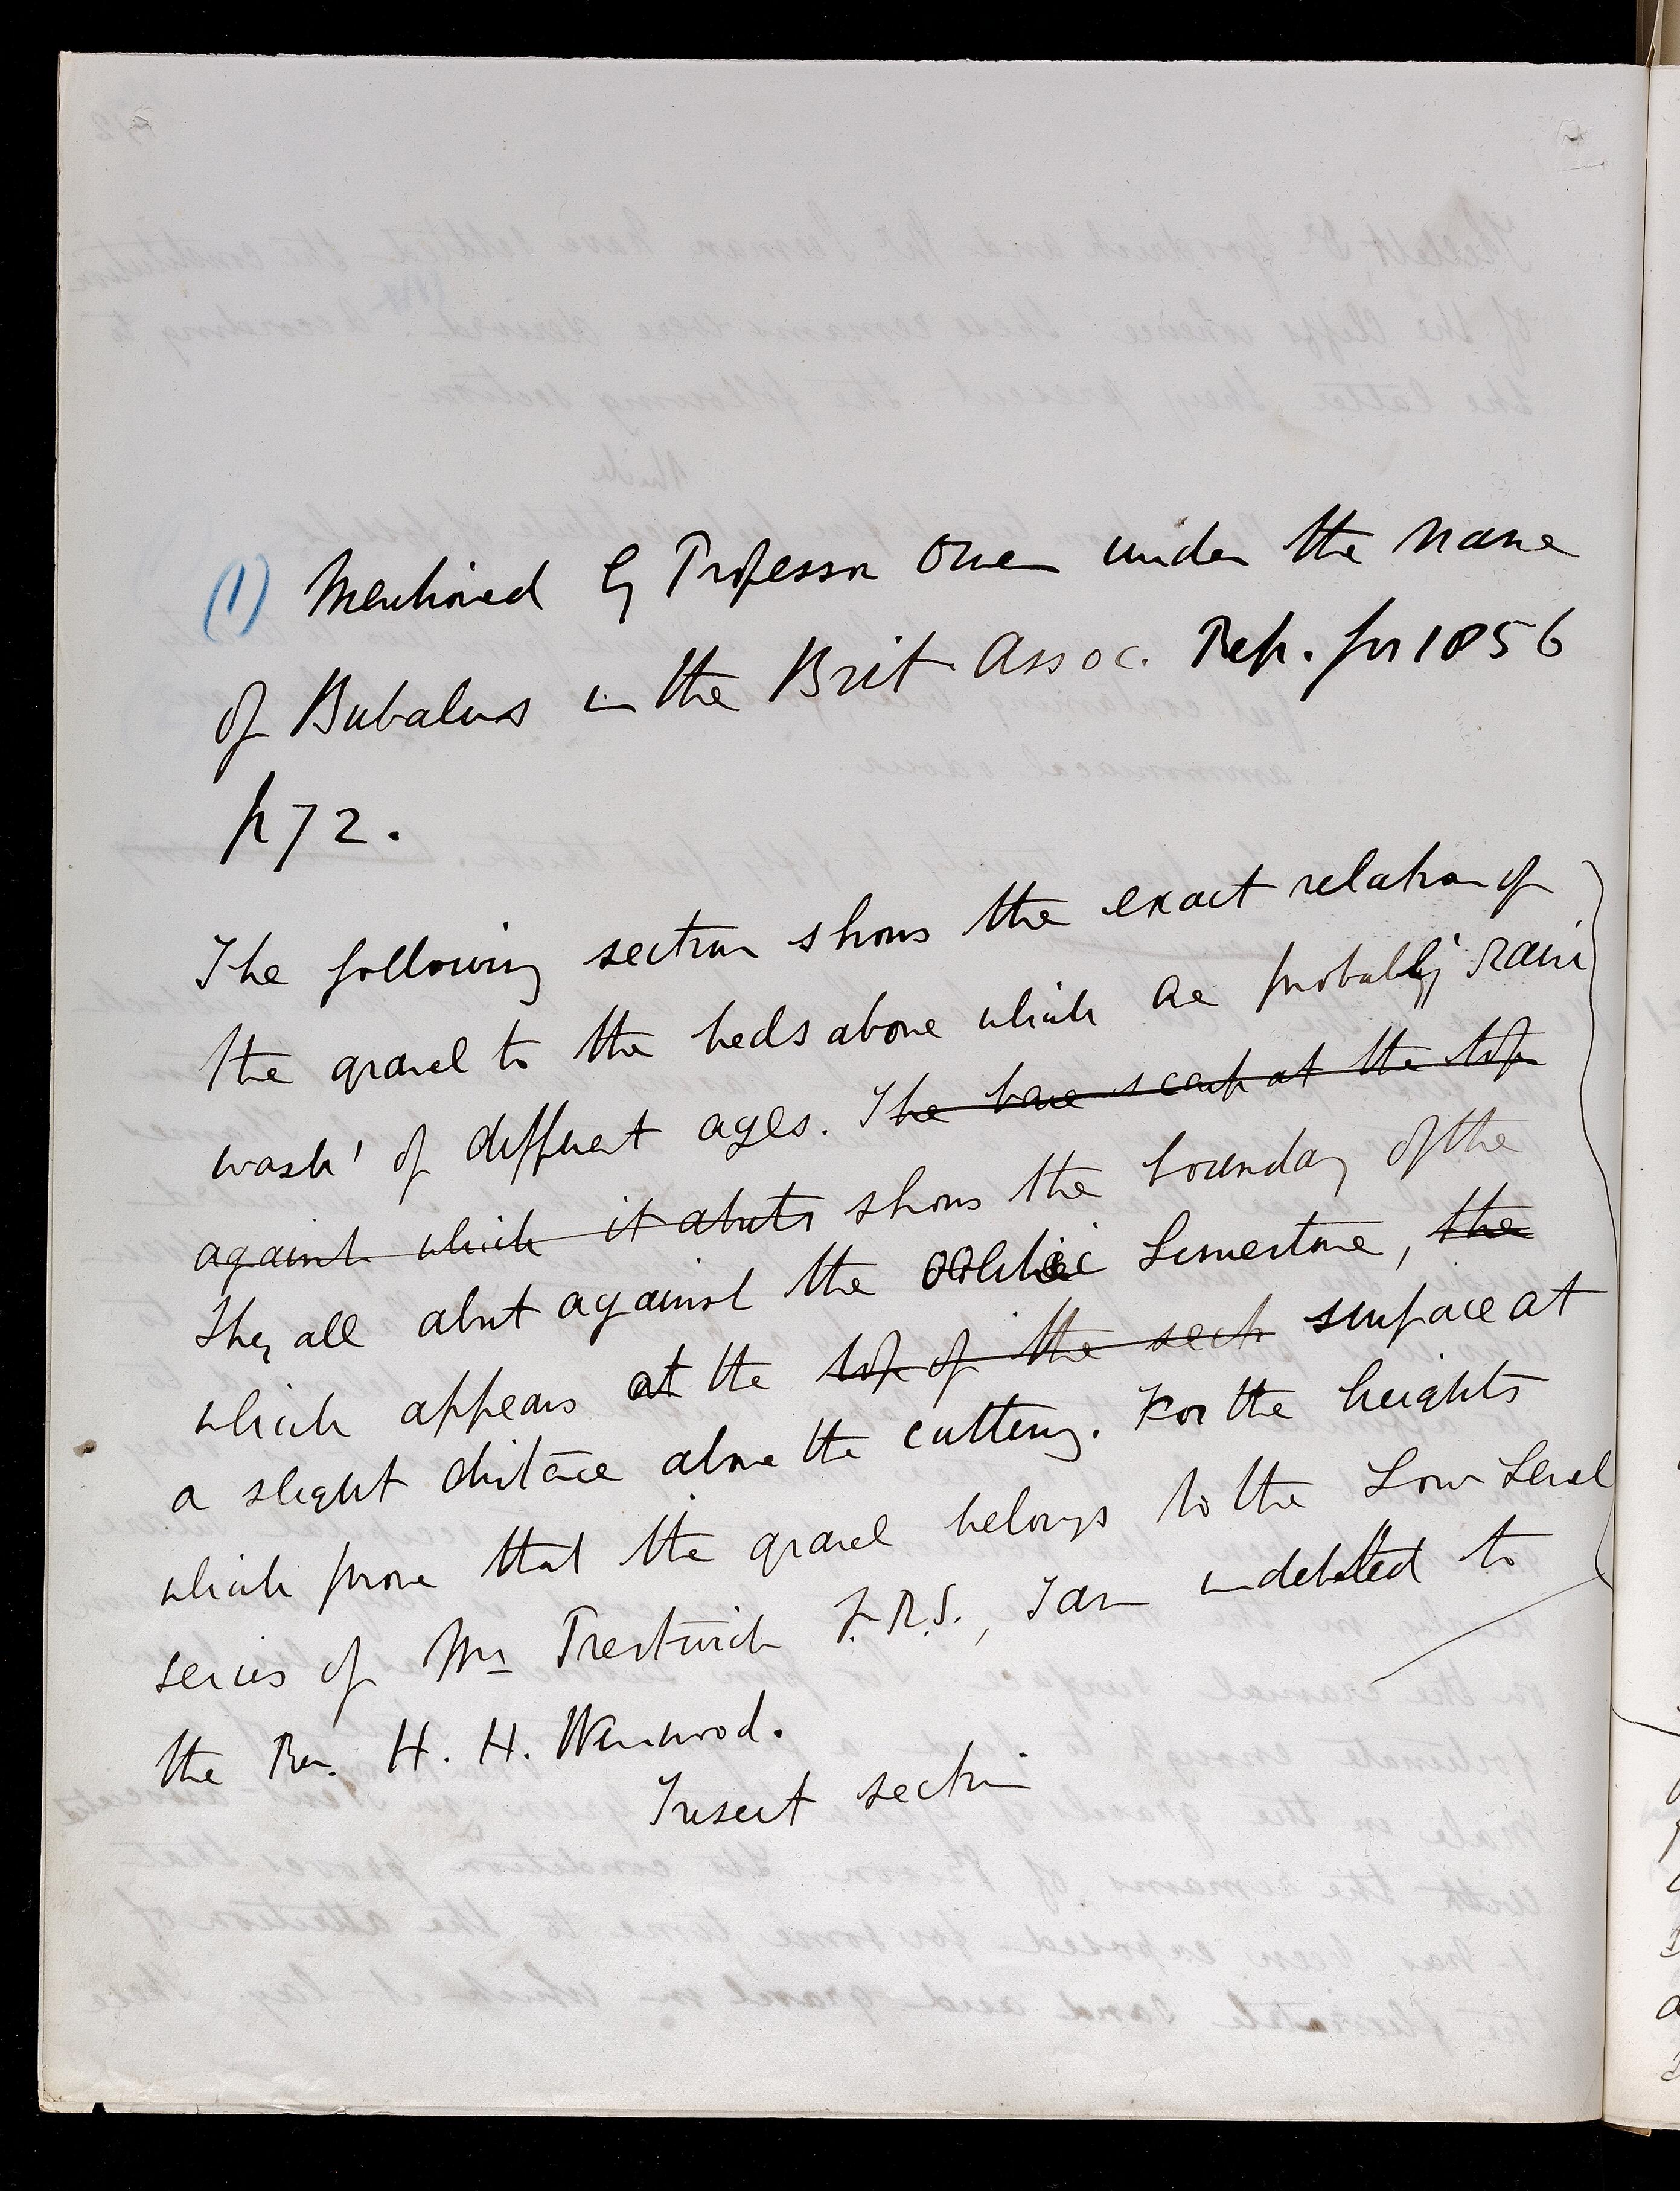 (1) Mentioned by Professor Owen under the name
of Bubalus in the Brit Assoc. Rep. for 1856
p 72.
The following section shows the exact relation of
the gravel to the beds above which are probably 'rain
wash' of different ages. The bare scarp at the top
against which it abuts shows the boundary of the
They all abut against the oolitic Limestone, the
which appears at the top of the sect surface at
a slight distance above the cutting. For the heights
which prove that the gravel belongs to the Low Level
series of Mr Prestwich F.R.S., I am indebted to
the Rev. H. H. Winwood.
Insert section